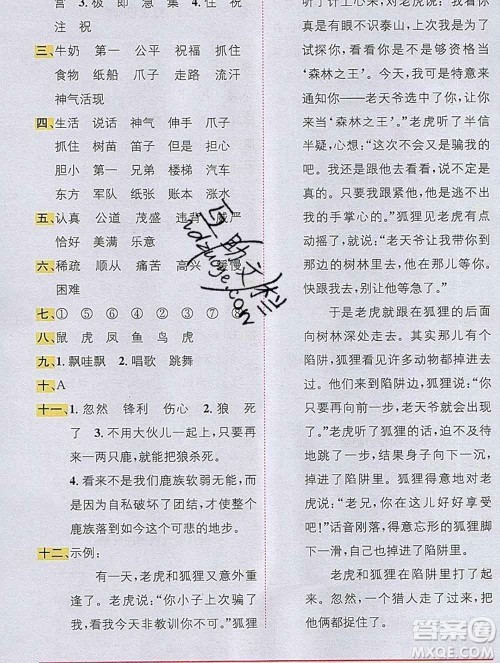 营  3. 极  即  急  集  4. 住  祝
注  祝
三、牛奶  第一  公平  祝福  抓住
食物  纸船  爪子  走路  流汗
神气活现
四、生活  说话  神气  伸手  爪子
抓住  树苗  笛子  但是  担心
胆小  第一  兄弟  楼梯  汽车
东方  军队  四大  账本  涨水
五、认真  公道  茂盛  违背  威严
恰好  美满  乐意
六、稀疏  顺从  痛苦  高兴  缓慢
困难
七、① ⑤ ② ③ ④ ⑥ ⑦ ⑧
八、鼠  虎  凤  鱼  鸟  虎
九、1. 飘哇飘  2. 唱歌  跳舞
十、A
十一、1. 忽然  锋利  伤心  2. 狼  死
了  3. 不用大伙儿一起上,只要再
来两只鹿,就能把狼杀死。
4. 看来不是我们鹿族软弱无能,而
是因为自私破坏了团结,这才使整个
鹿族落到如今这个可悲的地步。
十二、示例:
有一天,老虎和狐狸又意外重
逢了。老虎说:“你小子上次骗了
我,看我今天非教训你不可。”狐狸
听了计上心来,对老虎说:“我看你
真是有眼不识泰山,上次我是为了
试探你,看看你是不是够资格当
‘森林之王’。今天,我是特意来
通知你——老天爷选中了你,你
当‘森林之王’。”老虎听了半信
半疑,心想:“这次可不能再让他
逃走,不过他又会是骗我的吗?
还是我跟他去看看,他也逃不出我
的手掌心的。”狐狸看见老虎有点
动摇了,就说:“我现在就带你去前
边的树林里,他在那儿等你呢。
快跟我去,别让他等急了。”
于是老虎就跟在狐狸后面向
树林深处走去。又来到了一个陷阱,
狐狸看见许多动物都掉进去过,
就想让老虎也掉到陷阱里。狐狸
说:“到了,老天爷就在前边。”
老虎听了就向狐狸指的方向走去,
结果掉到了陷阱里。狐狸得意地对
老虎说:“老兄,你在这儿好好享受
吧!”话音刚落,得意忘形的狐狸
一不小心也掉进了陷阱里。
老虎和狐狸在陷阱里打了起
来。忽然,一个猎人走了过来,把他
们俩都捉住了。
答案圈
MXQE.COM